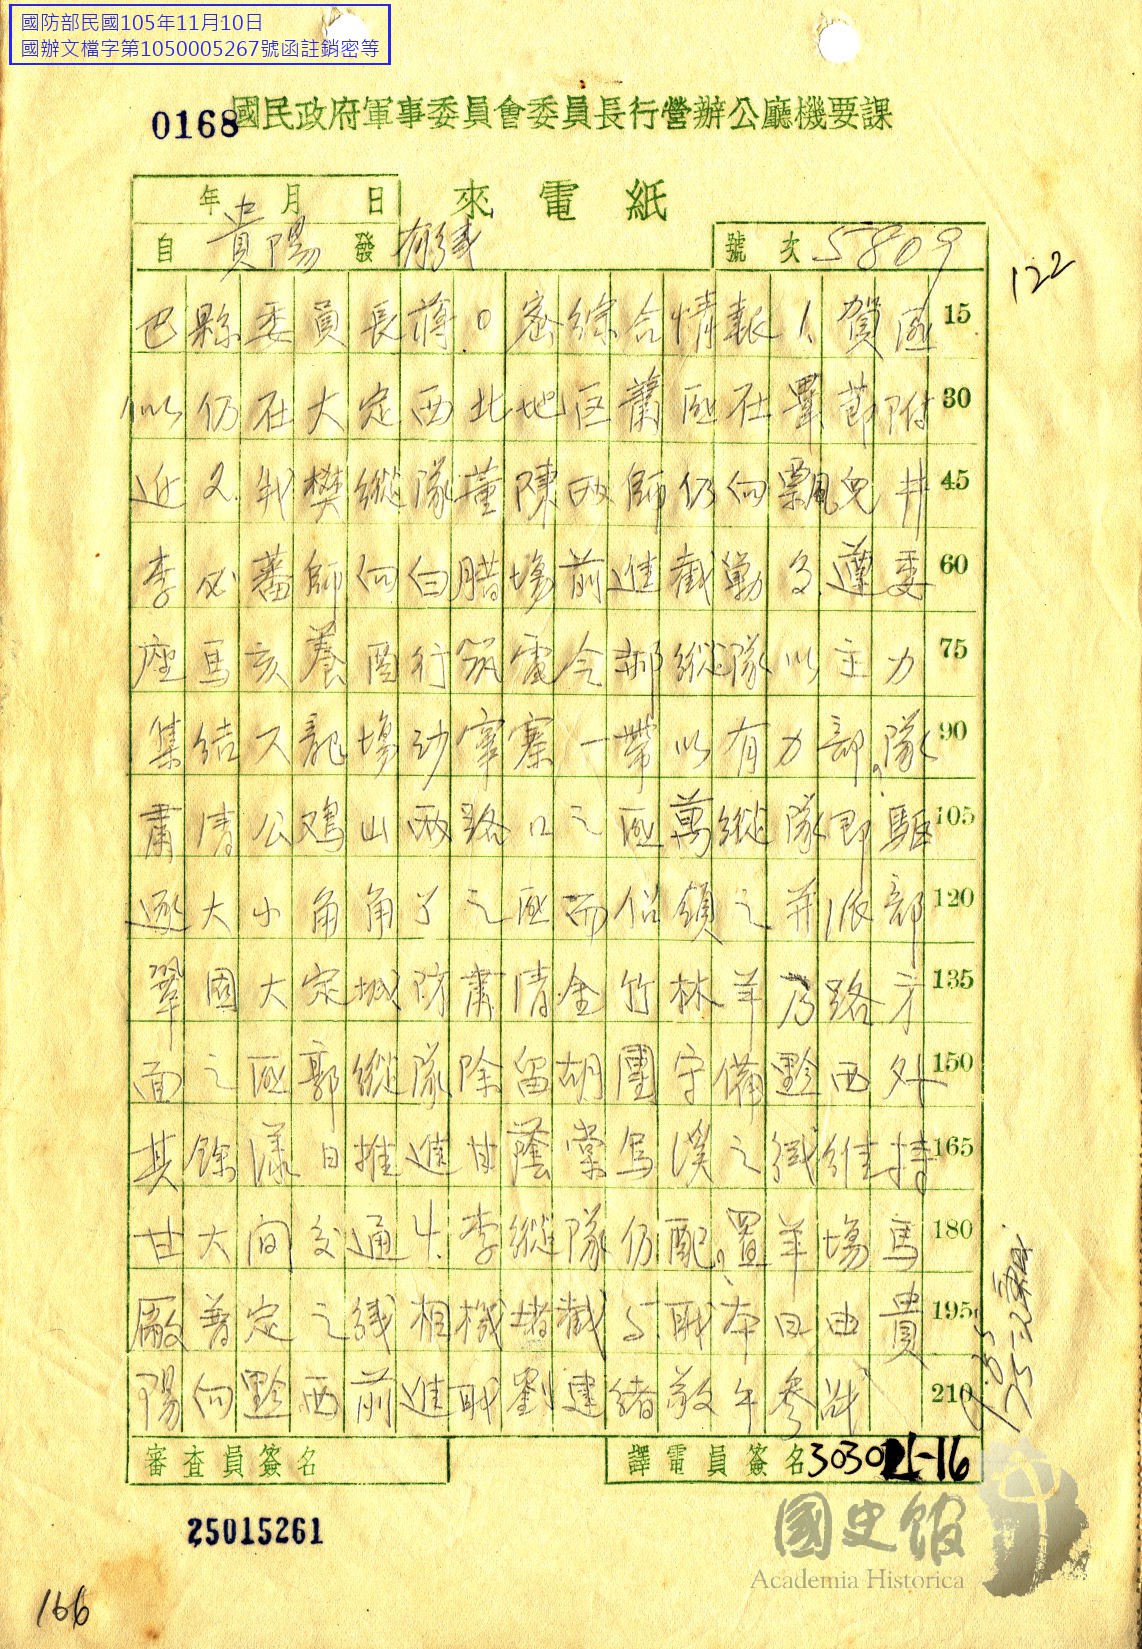 國防部民國105年11月10日
國辦文檔字第1050005267號函註銷密等
0168
國民政府軍事委員會委員長行營辦公廳機要課
來電紙
年 月 日
自 貴陽 發
號次 5809
122
巴縣委員長蔣.0密綜合情報1.賀匪 15
似仍在大定西北地区蕭匪在畢節附 30
近2.我樊縱隊董陳两師仍向瓢兒井 45
李必蕃師向白腊塲前進截勦3.遵委 60
座馬亥養酉行筑電令郝縱隊以主力 75
集結大龍塲沙窜寨一帶以有力部隊 90
肅清公鸡山两路口之匪萬縱隊即驅 105
逐大小角角了之匪而佔領之并派部 120
鞏固大定城防肅清金竹林羊乃路方 135
面之匪郭縱隊除留胡團守備黔西外 150
其餘漾日推進甘蔭棠烏溪之綫維持 165
甘大间交通4.李縱隊仍配置羊塲馬 180
廠普定之綫相機堵截5.職本日由貴 195
陽向黔西前進職劉建緒敬午參战 210
審查員簽名
譯電員簽名
25015261
國史館
Academia Historica
166